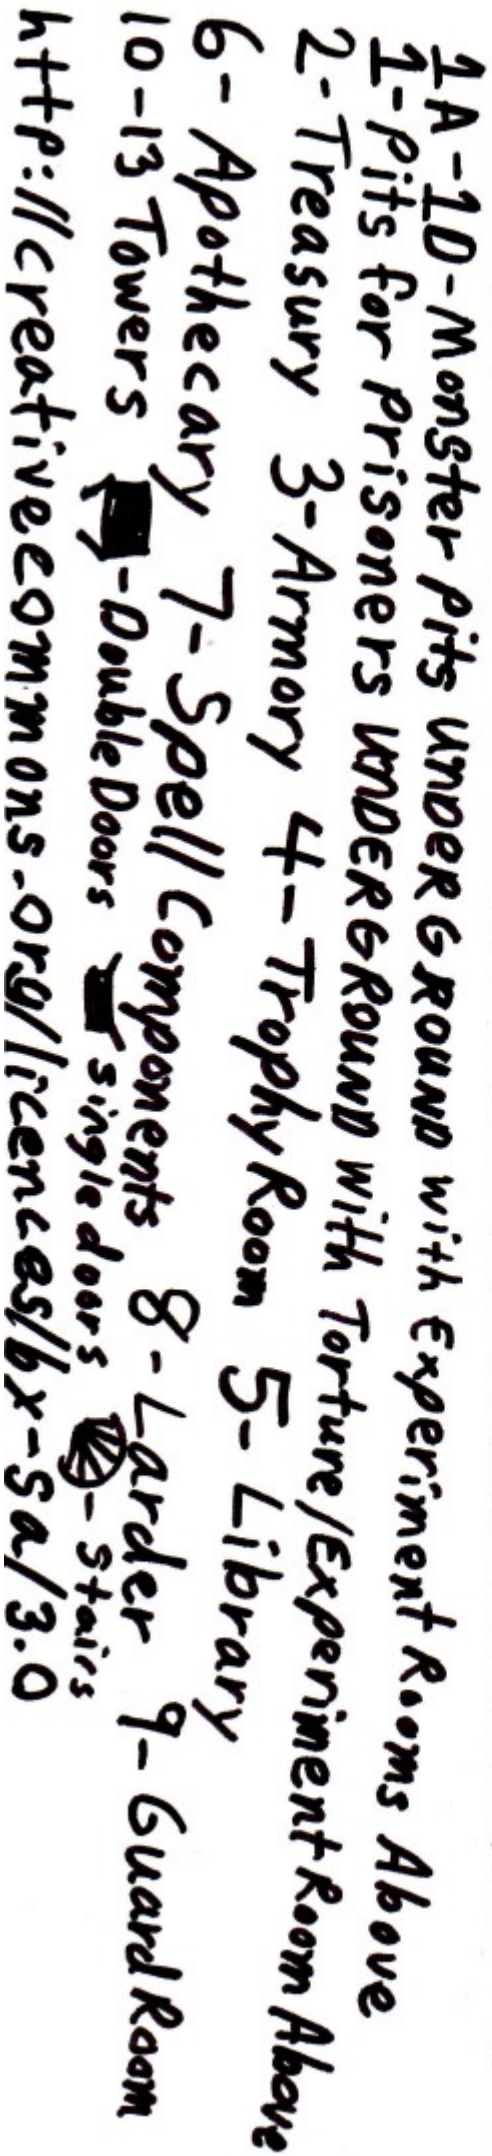 1A-1D-Monster Pits UNDERGROUND with Experiment Rooms Above
1-Pits for Prisoners UNDERGROUND with Torture/Experiment Room Above
2-Treasury 3-Armory 4-Trophy Room 5-Library
6-Apothecary 7-Spell Components 8-Larder 9-Guard Room
10-13 Towers -Double Doors single doors -Stairs
http://creativecommons.org/licences/by-sa/3.0